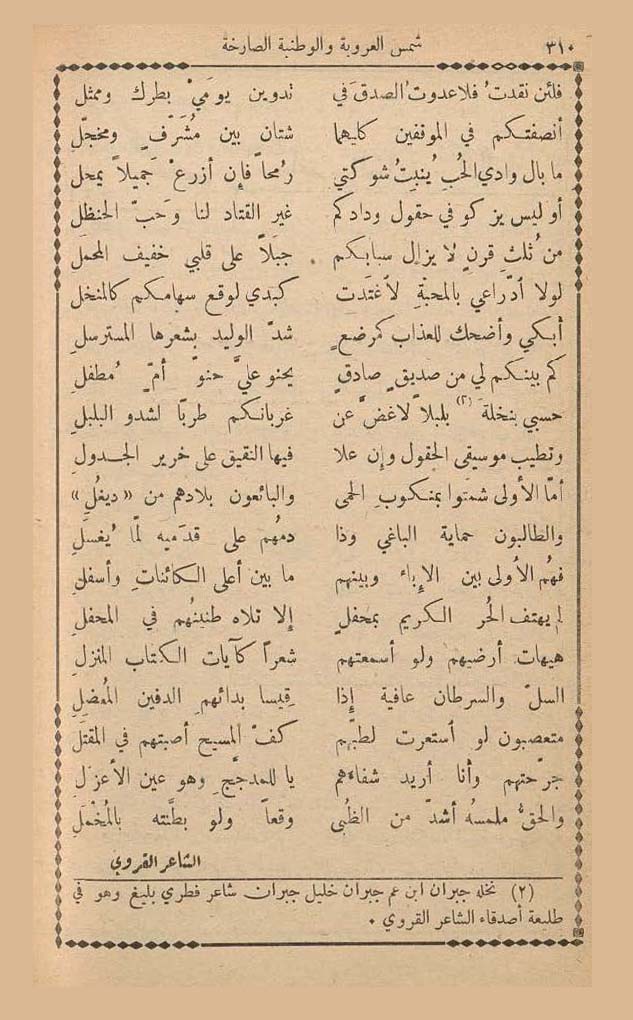 ٣١٠ شمس العروبة والوطنية الصارخة
فلئن نقدتُ فلا عدوتُ الصدقَ في تدوين يومَيْ بطرك وممثل
أنصفتكم في الموقفين كليهما شتان بين مُشَرِّفٍ ومخجّلِ
ما بال وادي الحُبِ يُنبِتُ شوكتي رُمحاً فإن أزرعْ جَميلاً يمحل
أو ليس يزكو في حقول ودادكم غير القتاد لنا وحَبّ الحنظل
من ثُلثِ قرنٍ لا يزال سبابكم جبَلاً على قلبي خفيف المحمل
لولا ادّراعي بالمحبةِ لاغتدت كبدي لوقع سهامكم كالمنخل
أبكي وأضحك للعذاب كمرضعٍ شدّ الوليد بشعرها المسترسلِ
كم بينكم لي من صديقٍ صادقٍ يحنو عليَّ حنوّ أمٍّ مُطفلِ
حسبي بنخلةَ (٢) بلبلاً لاغضّ عن غربانكم طربًا لشدو البلبلِ
وتطيب موسيقى الحقول وإن علا فيها النقيق على خرير الجدولِ
أمّا الأولى شمتوا بمنكوبِ الحمى والبائعون بلادهم من «ديغُلِ»
والطالبون حماية الباغي وذا دمُهم على قدَميه لمّا يُغسَلِ
فهُم الأولى بين الإباء وبينهم ما بين أعلى الكائناتِ وأسفلِ
لم يهتف الحُر الكريم بمحفلٍ إلا تلاه طنينُهم في المحفلِ
هيهات أرضيهم ولو أسمعتهم شعراً كآيات الكتاب المنزلِ
السلّ والسرطان عافية إذا قيسا بدائهمِ الدفين المُعضِلِ
متعصبون لو استعرت لطبّهم كفّ المسيح أصبتهم في المقتل
جرّحتهم وأنا أريد شفاءهم يا للمدجَّجِ وهو عين الأعزلِ
والحقُّ ملمسهُ أشدّ من الظُبى وقعاً ولو بطَّنته بالمُخْملِ
الشاعر القروي
(٢) نخله جبران ابن عم جبران خليل جبران شاعر فطري بليغ وهو في
طليعة أصدقاء الشاعر القروي .